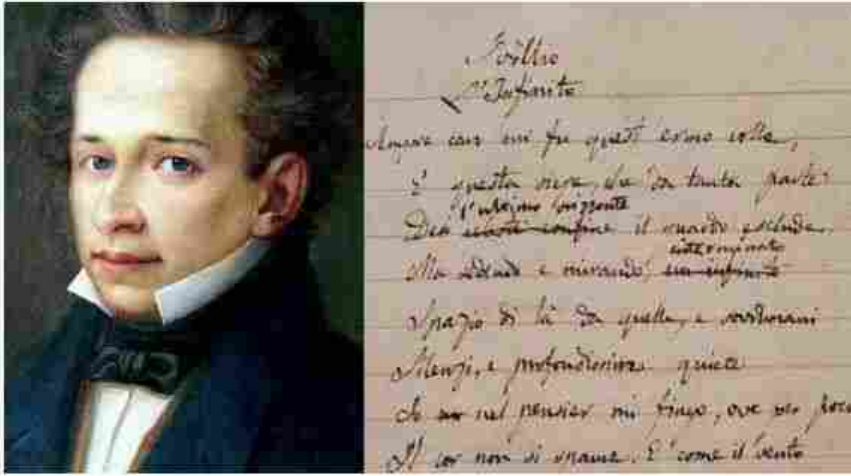 Idillio
L'Infinito
Sempre caro mi fu quest'ermo colle,
E questa siepe, che da tanta parte
l'ultimo orizzonte
Del confine il guardo esclude.
interminato
Ma sedendo e mirando, un infinito
Spazio di là da quella, e sovrumani
Silenzi, e profondissima quiete
Io nel pensier mi fingo, ove per poco
Il cor non si spaura. E come il vento